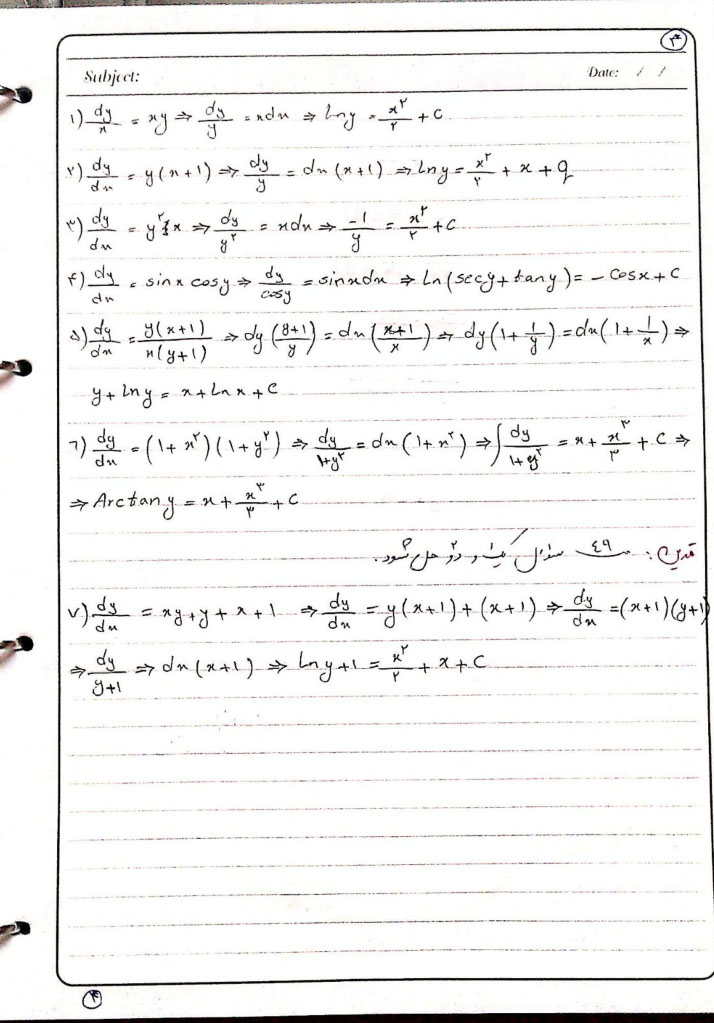 ۳
Subject: Date: / /
۱) dy/x = xy ⇒ dy/y = xdx ⇒ Lny = x^۲/۲ + C
۲) dy/dx = y(x+1) ⇒ dy/y = dx(x+1) ⇒ Lny = x^۲/۲ + x + C
۳) dy/dx = y^۲x ⇒ dy/y^۲ = xdx ⇒ -1/y = x^۲/۲ + C
۴) dy/dx = sinx cosy ⇒ dy/cosy = sinxdx ⇒ Ln(secy + tany) = - Cosx + C
۵) dy/dx = y(x+1)/x(y+1) ⇒ dy(y+1/y) = dx(x+1/x) ⇒ dy(1+1/y) = dx(1+1/x) ⇒
y + Lny = x + Lnx + C
۶) dy/dx = (1+x^۲)(1+y^۲) ⇒ dy/1+y^۲ = dx(1+x^۲) ⇒ ∫dy/1+y^۲ = x + x^۳/۳ + C ⇒
⇒ Arctany = x + x^۳/۳ + C
تمرین: ۴۹ سؤال ۱ و ۲ حل شود.
۷) dy/dx = xy+y+x+1 ⇒ dy/dx = y(x+1)+(x+1) ⇒ dy/dx = (x+1)(y+1)
⇒ dy/y+1 ⇒ dx(x+1) ⇒ Lny+1 = x^۲/۲ + x + C